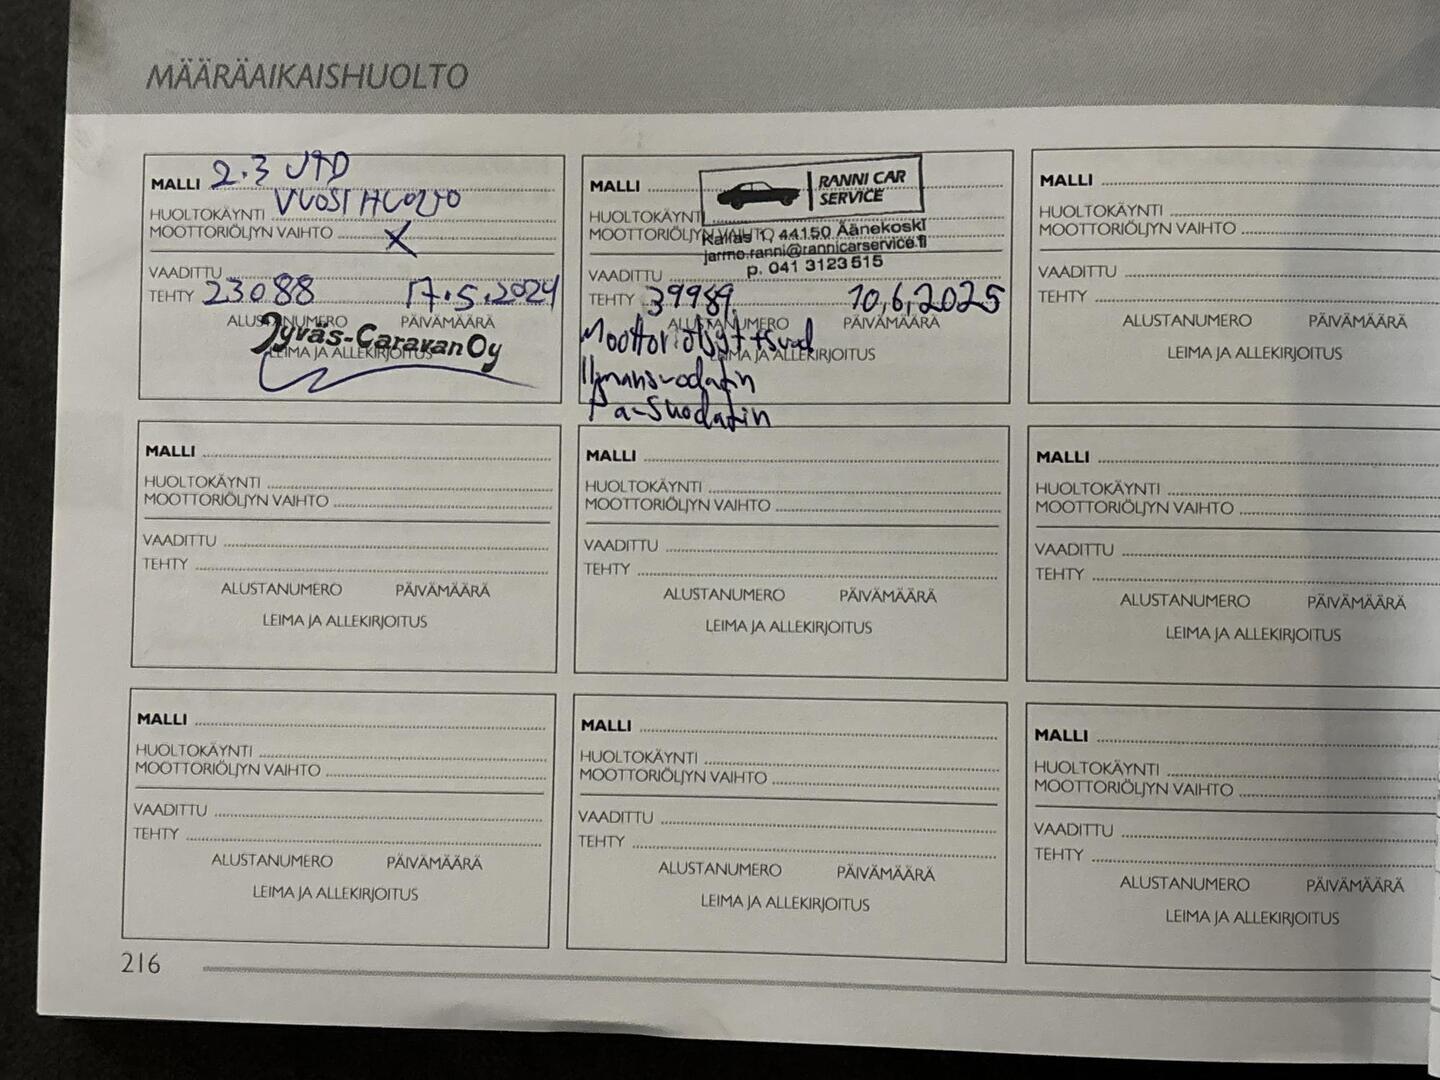 MÄÄRÄAIKAISHUOLTO
MALLI 2.3 JTD
HUOLTOKÄYNTI VUOSIHUOLTO
MOOTTORIÖLJYN VAIHTO X
VAADITTU
TEHTY 23088 17.5.2024
ALUSTANUMERO PÄIVÄMÄÄRÄ
Jyväs-Caravan Oy
LEIMA JA ALLEKIRJOITUS
MALLI
RANNI CAR
SERVICE
HUOLTOKÄYNTI
MOOTTORIÖLJYN VAIHTO
Kallas 1, 44150 Äänekoski
jarmo.ranni@rannicarservice.fi
p. 041 3123515
VAADITTU
TEHTY 39989 10.6.2025
ALUSTANUMERO PÄIVÄMÄÄRÄ
LEIMA JA ALLEKIRJOITUS
Ilmansuodatin
MALLI
HUOLTOKÄYNTI
MOOTTORIÖLJYN VAIHTO
VAADITTU
TEHTY
ALUSTANUMERO PÄIVÄMÄÄRÄ
LEIMA JA ALLEKIRJOITUS
MALLI
HUOLTOKÄYNTI
MOOTTORIÖLJYN VAIHTO
VAADITTU
TEHTY
ALUSTANUMERO PÄIVÄMÄÄRÄ
LEIMA JA ALLEKIRJOITUS
MALLI
HUOLTOKÄYNTI
MOOTTORIÖLJYN VAIHTO
VAADITTU
TEHTY
ALUSTANUMERO PÄIVÄMÄÄRÄ
LEIMA JA ALLEKIRJOITUS
MALLI
HUOLTOKÄYNTI
MOOTTORIÖLJYN VAIHTO
VAADITTU
TEHTY
ALUSTANUMERO PÄIVÄMÄÄRÄ
LEIMA JA ALLEKIRJOITUS
MALLI
HUOLTOKÄYNTI
MOOTTORIÖLJYN VAIHTO
VAADITTU
TEHTY
ALUSTANUMERO PÄIVÄMÄÄRÄ
LEIMA JA ALLEKIRJOITUS
MALLI
HUOLTOKÄYNTI
MOOTTORIÖLJYN VAIHTO
VAADITTU
TEHTY
ALUSTANUMERO PÄIVÄMÄÄRÄ
LEIMA JA ALLEKIRJOITUS
MALLI
HUOLTOKÄYNTI
MOOTTORIÖLJYN VAIHTO
VAADITTU
TEHTY
ALUSTANUMERO PÄIVÄMÄÄRÄ
LEIMA JA ALLEKIRJOITUS
216